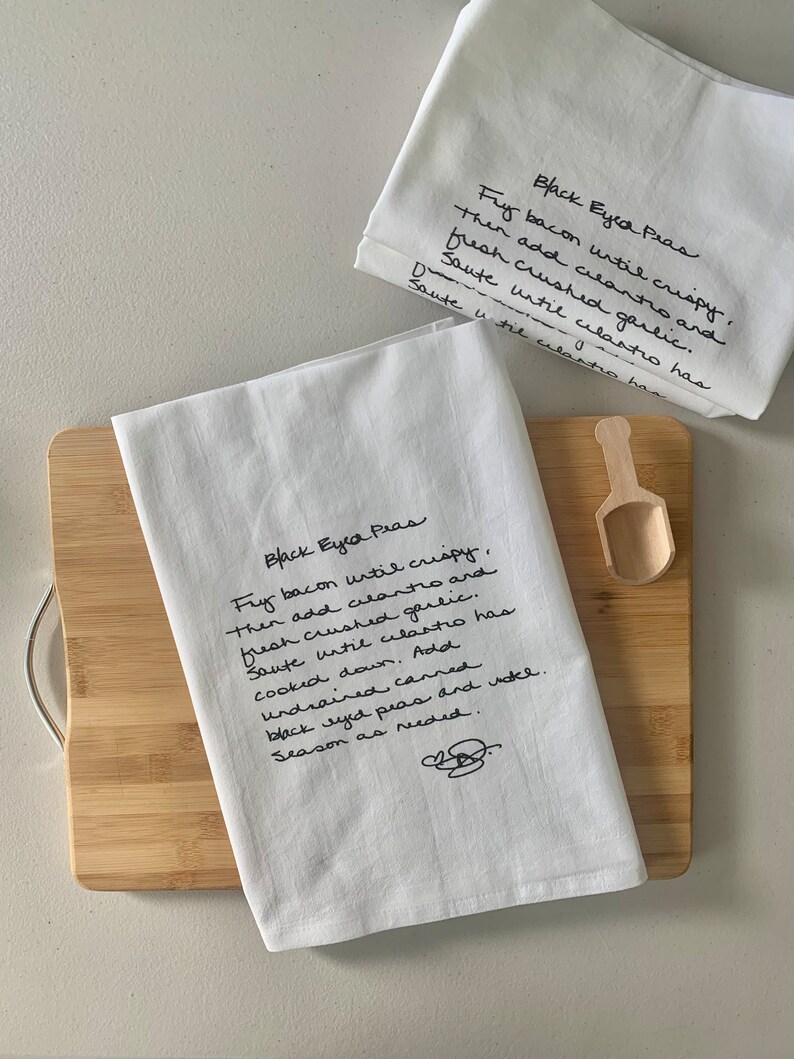 Black Eyed Peas
Fry bacon until crispy,
then add cilantro and
fresh crushed garlic.
Saute until cilantro has
Saute until cilantro has
Black Eyed Peas
Fry bacon until crispy,
then add cilantro and
fresh crushed garlic.
Saute until cilantro has
cooked down. Add
undrained canned
black eyed peas and water.
Season as needed.